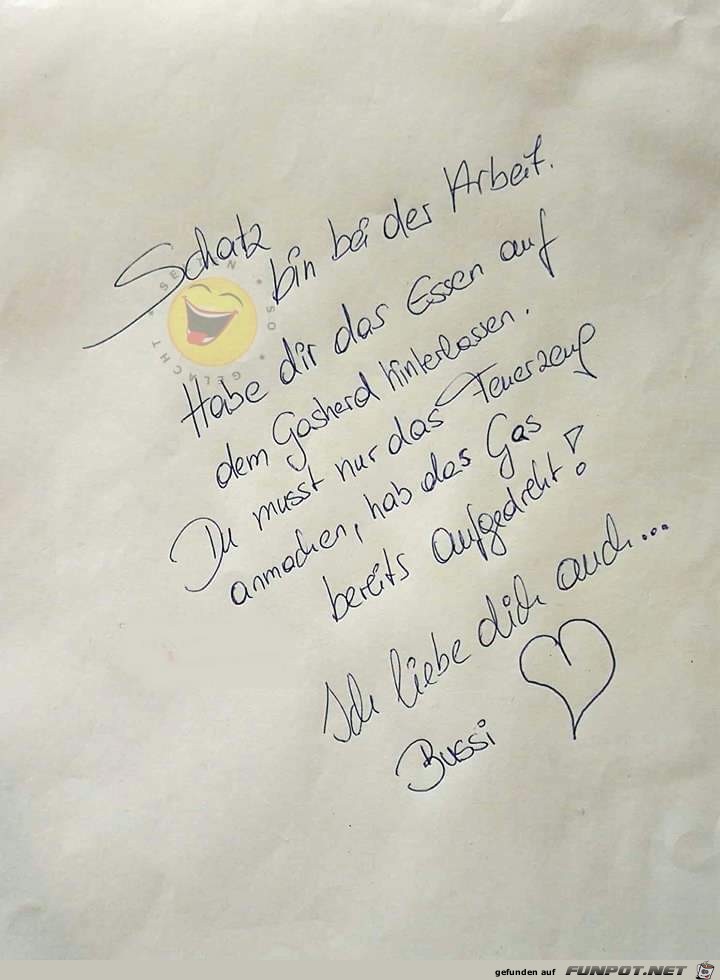 Schatz
bin bei der Arbeit.
Habe dir das Essen auf
dem Gasherd hinterlassen.
Du musst nur das Feuerzeug
anmachen, hab das Gas
bereits aufgedreht!
Ich liebe dich auch...
Bussi
SELTEN SO GELACHT
gefunden auf FUNPOT.NET